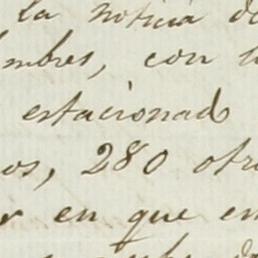 la noticia de
mbres, con l
estacionad
os, 280 otr
r en que en